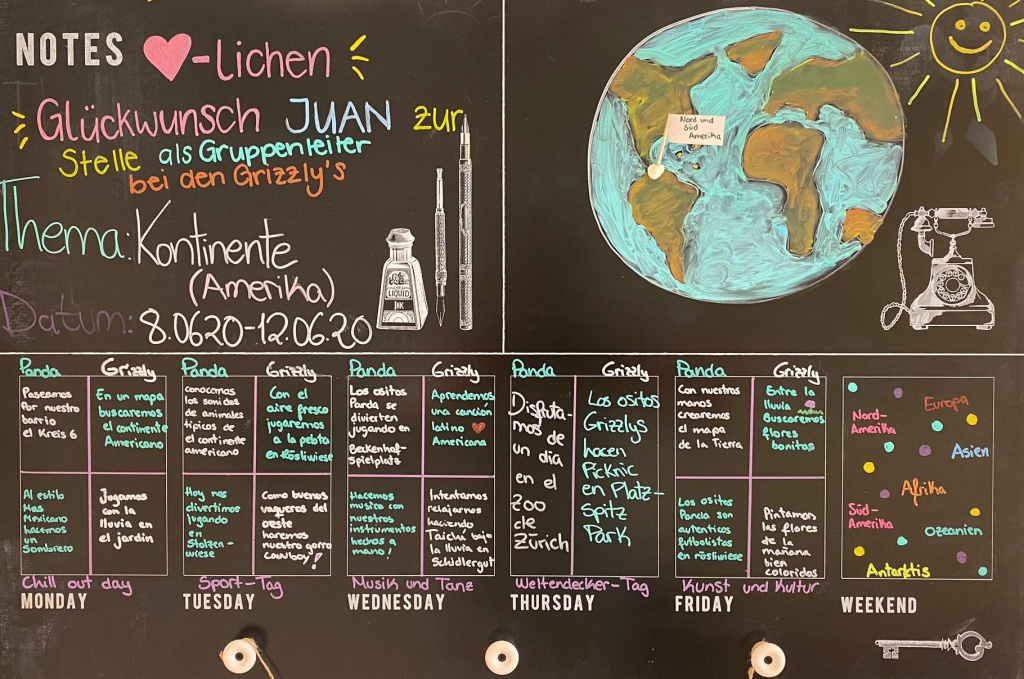 NOTES ♥-lichen
Glückwunsch JUAN zur
Stelle als Gruppenleiter
bei den Grizzly's
Thema: Kontinente
(Amerika)
Datum: 8.0620-12.06.20
LIQUID
INK
Nord und
Süd
Amerika
Panda Grizzly
Paseamos
Por nuestro
barrio
el Kreis 6
En un mapa
buscaremos
el continente
Americano
Al estilo
Mas
Mexicano
hacemos
un
Sombrero
Jugamos
con la
lluvia en
el jardin
Chill out day
MONDAY
Panda Grizzly
conocemos
los sonidos
de animales
típicos de
el continente
americano
Con el
aire fresco
jugaremos
a la pelota
en Rösliwiese
Hoy nos
divertimos
jugando
en
Stolzen-
wiese
Como buenos
vaqueros del
oeste
haremos
nuestro gorro
cowboy!
Sport-Tag
TUESDAY
Panda Grizzly
Los ositos
Panda se
divierten
jugando en
Beckenhof-
Spielplatz
Aprendemos
una canción
latino
Americana
Hacemos
musica con
nuestros
instrumentos
hechos a
mano!
Intentamos
relajarnos
haciendo
Taichi bajo
la lluvia en
Schidlergut
Musik und Tanz
WEDNESDAY
Panda Grizzly
Disfruta-
mos de
un día
en el
Zoo
de
Zürich
Los ositos
Grizzlys
hacen
Picknic
en Platz-
Spitz
Park
Weltendecker-Tag
THURSDAY
Panda Grizzly
Con nuestras
manos
crearemos
el mapa
de la Tierra
Entre la
lluvia
Buscaremos
flores
bonitas
Los ositos
Panda son
autenticos
futbolistas
en rösliwiese
Pintamos
las flores
de la
mañana
bien
coloridas
Kunst und Kultur
FRIDAY
Nord-
Amerika
Europa
Asien
Afrika
Süd-
Amerika
Ozeanien
Antarktis
WEEKEND